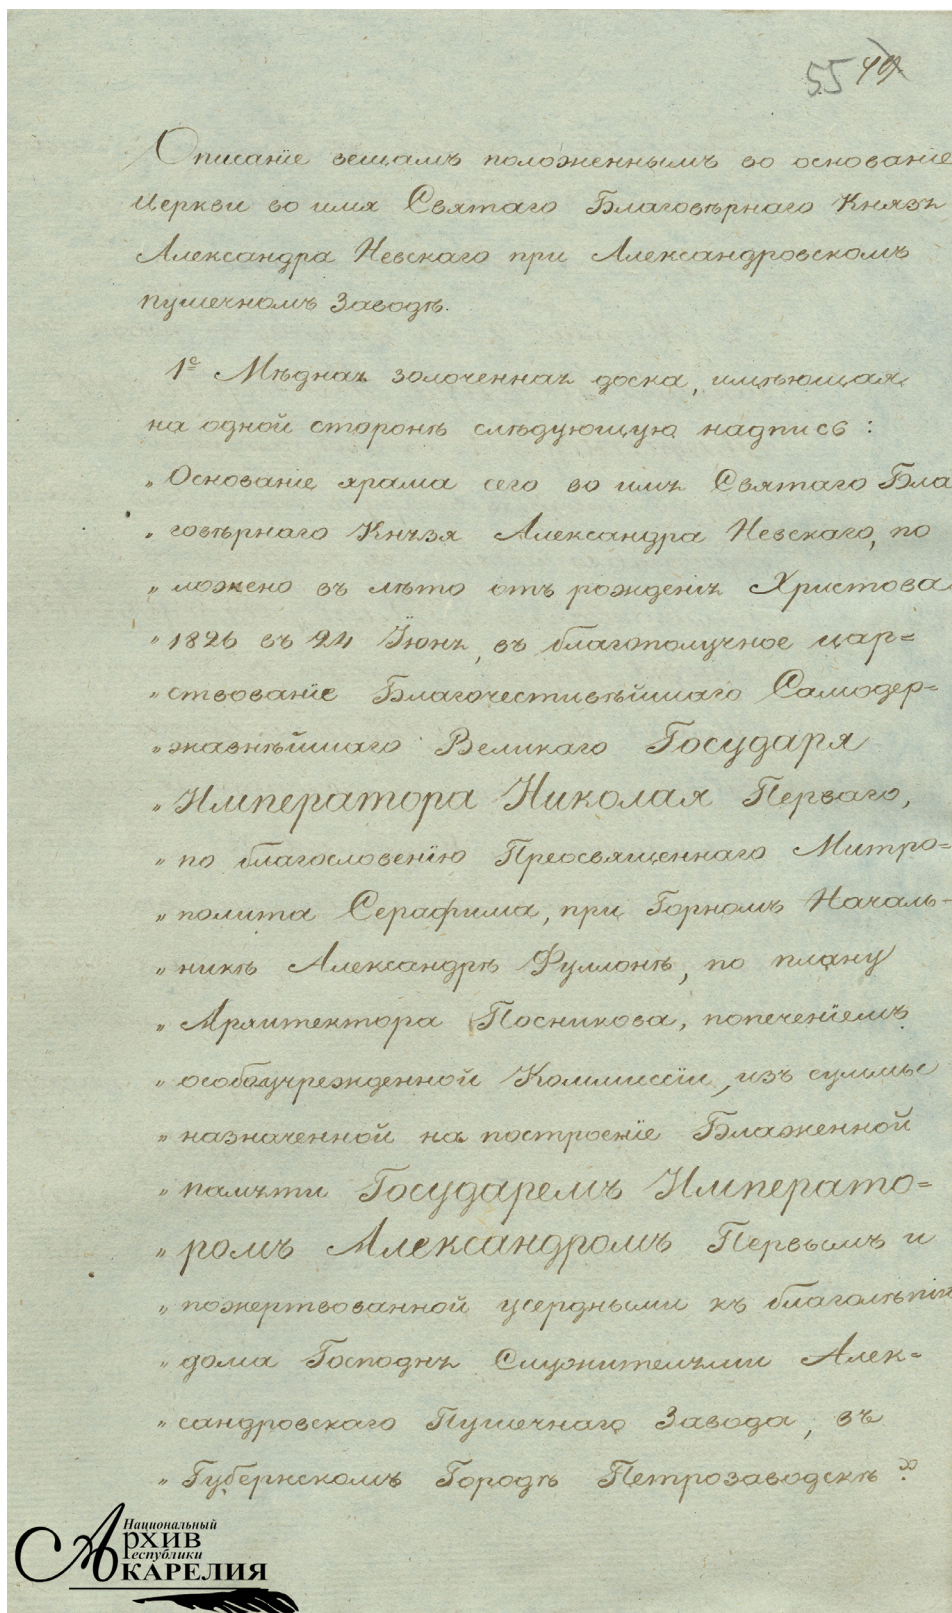 55 49
Описанiе вещамъ положеннымъ во основанiе
Церкви во имя Святаго Благовѣрнаго Князя
Александра Невскаго при Александровскомъ
пушечномъ Заводѣ.
1е Мѣдная золоченная доска, имѣющая
на одной сторонѣ слѣдующую надпись:
„ Основанiе храма сего во имя Святаго Бла
„ говѣрнаго Князя Александра Невскаго, по
„ ложено въ лѣто отъ рожденiя Христова
„ 1826 въ 24 Iюня, въ благополучное цар=
„ ствованiе Благочестивѣйшаго Самодер=
„ жавнѣйшаго Великаго Государя
„ Императора Николая Перваго,
„ по благословенiю Преосвященнаго Митро=
„ полита Серафима, при Горномъ Началь=
„ никѣ Александрѣ Фуллонѣ, по плану
„ Архитектора Посникова, попеченiемъ
„ особоучрежденной Коммиссiи, изъ суммы
„ назначенной на построенiе Блаженной
„ памяти Государемъ Императо=
„ ромъ Александромъ Первымъ и
„ пожертвованной усердными къ благолѣпiю
„ дома Господня Служителями Алек=
„ сандровскаго Пушечнаго Завода, въ
„ Губернскомъ Городѣ Петрозаводскѣ."
Национальный
Архив
Республики
Карелия